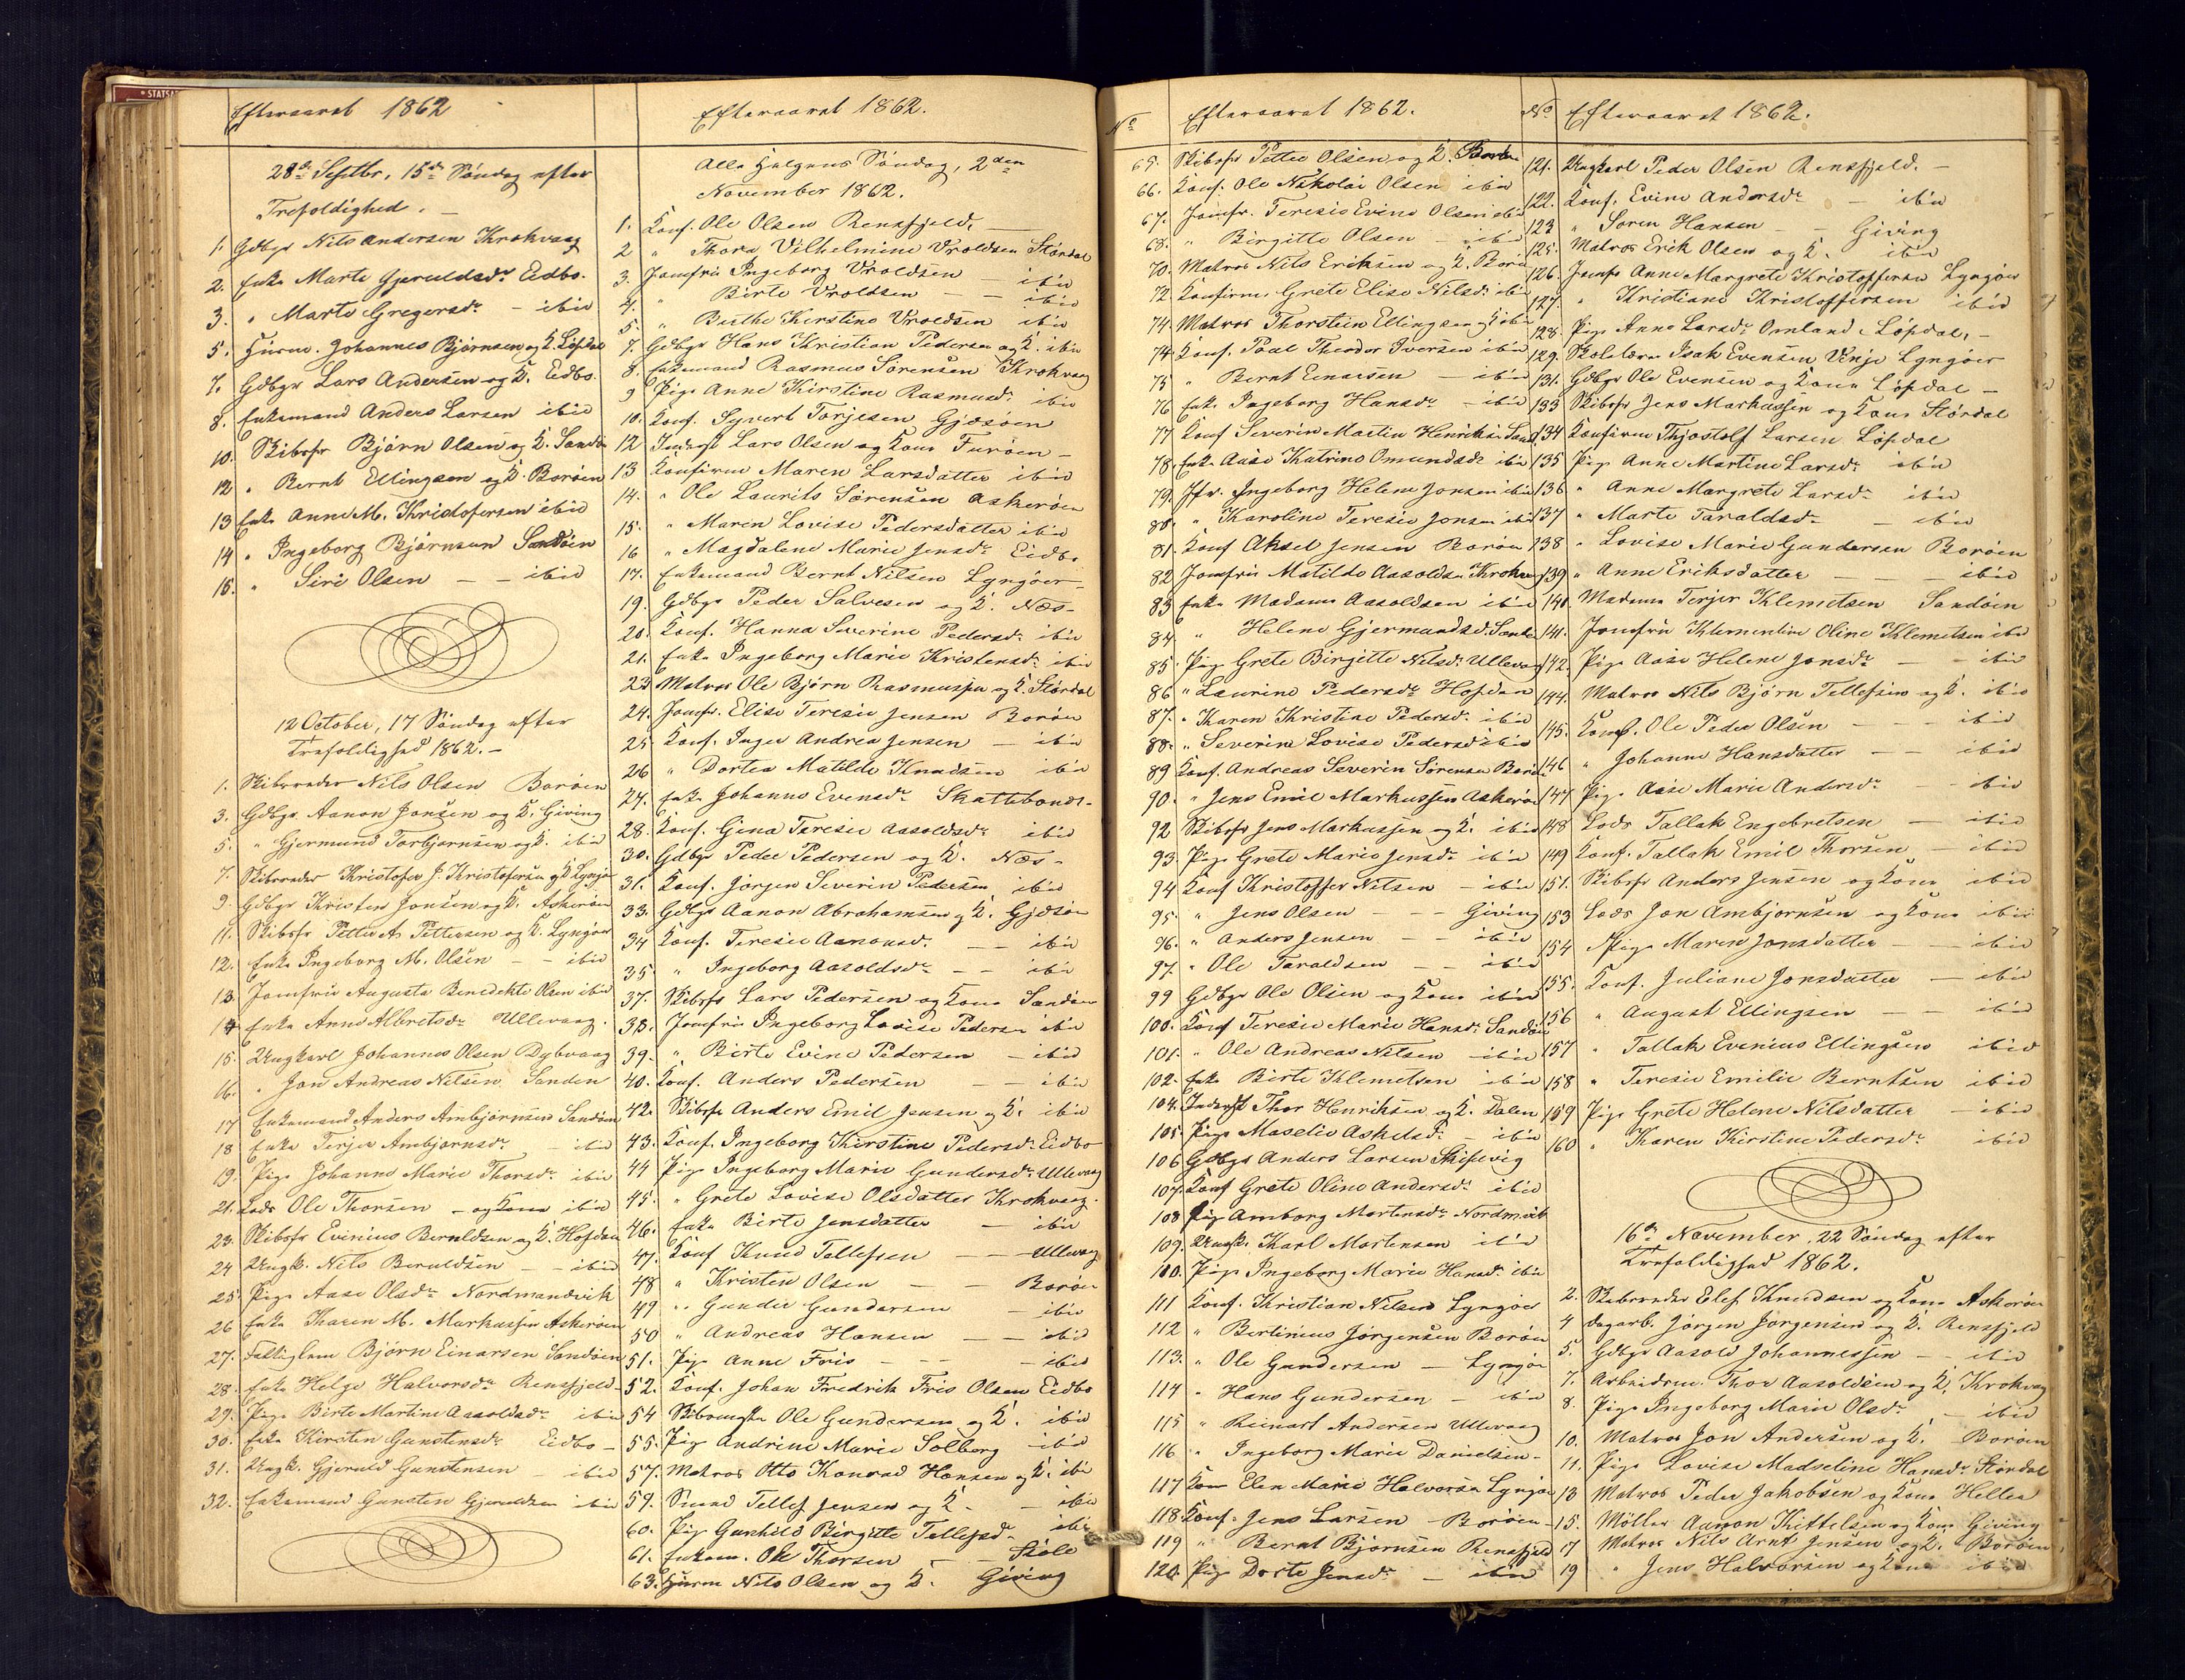 * STATSA
Efteraaret 1862
28de Septbr. 15de Søndag efter
Trefoldighed. —
1. Gdbgr Nils Andersen Krokvaag
2. Enke Marte Gjeruldsdr Eidbo.
3. " Marte Gregersdr — ibid
5. Huusm. Johannes Bjørnsen og K. Løfdal
7. Gdbgr Lars Andersen og K. Eidbo.
8. Enkemand Anders Larsen ibid
10. Skibsfr Bjørn Olsen og K. Sandøen
12. " Bernt Ellingsen og K. Borøen
13 Enke Anne M. Kristofersen ibid
14 " Ingeborg Bjørnsen Sandøen
15. " Siri Olsen — — ibid
12 October, 17 Søndag efter
Trefoldighed 1862. —
1. Skibsreder Nils Olsen Borøen
3. Gdbgr. Aanon Jonsen og K. Giving
5. " Gjermund Torbjørnsen og K. ibid
7. Skibsreder Kristofer J. Kristofersen og K. Lyngør
9. Gdbgr Kristen Jonsen og K. Askerøen
11. Skibsfr Petter A. Pettersen og K. Lyngøer
12. Enke Ingeborg M. Olsen — — ibid
13. Jomfru Augusta Benedikte Olsen ibid
14 Enke Anne Albretsdr Ullevaag.
15. Ungkarl Johannes Olsen Dybvaag
16. " Jon Andreas Nilsen Sanden
17 Enkemand Anders Ambjørnsen Sandøen
18 Enke Terjer Ambjørnsdr — ibid
19. Pige Johanne Marie Thorsdr. ibid
21. Lods Ole Thorsen — og Kone ibid
23. Skibsfr Evinius Beruldsen og K. Hofdan
24 Ungk. Nils Beruldsen — — ibid
25. Pige Aase Olsdr Nordmandvik
26 Enke Karen M. Markussen Askerøen
27. Fattiglem Bjørn Einarsen Sandøen
28. Enke Helge Halvorsdr Rensfjeld
29. Pige Birte Martine Aasoldsdr ibid
30. Enke Kirsten Gunstensdr Eidbo —
31. Ungk. Gjeruld Gunstensen — ibid
32. Enkemand Gunsten Gjeruldsen ibid
Efteraaret 1862.
Alle Helgens Søndag, 2den
November 1862.
1. Konf. Ole Olsen Rensfjeld. —
2 " Thora Vilhelmine Vroldsen Størdal
3. Jomfru Ingeborg Vroldsen — ibid
4. " Birte Vroldsen — — ibid
5. " Birthe Kirstine Vroldsen ibid
7. Gdbgr Hans Kristian Pedersen og K. ibid
8. Enkemand Rasmus Sørensen Krokvaag
9 Pige Anne Kirstine Rasmusdr ibid
10. Konf. Syvert Torjesen Gjæsøen
12 Inderst Lars Olsen og Kone Furøen —
13 Konfirm Maren Larsdatter ibid
14. " Ole Laurits Sørensen Askerøen
15. " Maren Lovise Pedersdatter ibid
16 " Magdalene Marie Jensdr Eidbo
17. Enkemand Bernt Nilsen Lyngøer
19. Gdbgr Peder Salvesen og K. Næs —
20. Konf. Hanna Severine Pedersdr ibid
21. Enke Ingeborg Marie Kristensdr ibid
23 Matros Ole Bjørn Rasmussen og K. Stördal
24. Jomfr. Elise Teresie Jensen Borøen
25 Konf. Inger Andrea Jensen — ibid
26 " Dortea Matilde Knudsen ibid
27. Enke Johanne Evensdr Skattebonde.
28. Konf. Gjena Teresie Aasoldsdr ibid
30. Gdbgr Peder Pedersen og K. Næs —
31. Konf. Jørgen Severin Pedersen ibid
33. Gdbgr Aanon Abrahamsen og K. Gjæsøen
34 Konf. Teresie Aanonsdr. — — ibid
35. " Ingeborg Aasoldsdr — — ibid
37. Skibsfr Lars Pedersen og Kone Sandøen
38. Jomfru Ingeborg Lovise Pedersen ibid
39. " Birte Evine Pedersen — ibid
40. Konf. Anders Pedersen — — ibid
42. Skibsfr Anders Emil Jensen og K. ibid
43. Konf. Ingeborg Kirstine Pedersdr. Eidbo
44 Pige Ingeborg Marie Gundersdr. Ullevaag
45. " Grete Lovise Olsdatter Krokvaag.
46. Enke Birte Jensdatter — ibid
47. Konf Knud Tallefsen — — Ullevaag
48 " Kristen Olsen — — Borøen
49 " Gunder Gundersen — ibid
50 " Andreas Hansen — — ibid
51. Pige Anne Friis — — — ibid
52. Konf. Johan Fredrik Fris Olsen Eidbo
54 Ole Gundersen og K. ibid
55. Pige Andrine Marie Solberg ibid
57. Matros Otto Konrad Hansen og K. ibid
59. Smed Tellef Jensen og K. — ibid
60. Pige Gunhild Birgitte Tellefsdr. ibid
61. Enkem. Ole Thorsen — — Skole
63. Huusm Nils Olsen og K. Giving
No Efteraaret 1862.
65. Skibsfr Petter Olsen og K. Borøen
66. Konf. Ole Nikolai Olsen ibid
67. Jomfr. Teresie Evine Olsen ibid
68. " Birgitte Olsen — ibid
70. Matros Nils Eriksen og K. Borøen
72 Konfirm. Grete Elise Nilsdr ibid
74. Matros Thorstein Ellingsen og K ibid
74. Konf. Poal Theodor Iversen ibid
75 " Bernt Einarsen — ibid
76 Enke Ingeborg Hansdr — ibid
77 Konf Severin Martin Henriksen Sand.
78. Enke Aase Katrine Omundsdr ibid
79. Jfr. Ingeborg Helene Jonsen ibid
80. " Karoline Teresie Jonsen ibid
81. Konf Aksel Jensen Borøen
82 Jomfru Matilde Aasoldsen Krokvaag
83 Enke Madame Aasoldsen ibid
84. " Helene Gjermundsd. Sande
85. Pige Grete Birgitte Nilsdr. Ullevaag
86 " Laurine Pedersdr Hofdan
87. " Karen Kristine Pedersdr. ibid
88. " Severine Lovise Pedersdr ibid
89 Konf. Andreas Severin Sørensen Borøen
90. " Jens Emil Markussen Askerøen
92 Skibsfr Jens Markussen og K. ibid
93. Pige Grete Marie Jensdr ibid
94 Konf Kristoffer Nilsen — ibid
95. " Jens Olsen — — Giving
96. " Anders Jensen — — ibid
97. " Ole Taraldsen — — ibid
99 Gdbgr Ole Olsen og Kone ibid
100. Konf Teresie Marie Hansdr Sandøen
101. " Ole Andreas Nilsen — ibid
102. Enke Birte Klemetsen ibid
104. Inderst Thor Henriksen og K. Dalen
105. Pige Maselie Askelsdr. — ibid
106 Gdbgr Anders Larsen Skifsvig
107. Konf Grete Oline Andersdr. ibid
108 Pige Amborg Mortensdr. Nordmvik
109. Ungk. Karl Mortensen ibid
110. Pige Ingeborg Marie Hansdr. ibid
111 Konf. Kristian Nilsen Lyngøer
112 " Bertinius Jørgensen Borøen
113. " Ole Gundersen — Lyngøer
114 " Hans Gundersen — ibid
115 " Reinart Andersen Ullevaag
116. " Ingeborg Marie Danielsen —
117 Kone Elen Marie Halvorsen Lyngøer
118 Konf. Jens Larsen — Borøen —
119 " Bernt Bjørnsen Rensfjeld
120 Pige Dorte Jensdr — ibid
No Efteraaret 1862.
121. Ungkarl Peder Olsen Rensfjeld. —
122. Konf. Evine Andersdr — ibid
123 " Søren Hansen — — Giving
125. Matros Erik Olsen og K. ibid
126. Jomfr Anne Margrete Kristoffersen Lyngøer
127. " Kristiane Kristoffersen ibid
128. Pige Anne Larsdr Omland, Løfdal. —
129. Skolelærer Isak Evensen Vinje Lyngøer
131. Gdbgr Ole Evensen og Kone Løfdal —
133 Skibsfr Jens Markussen og Kone Stördal
134 Konfirm Thjostolf Larsen Løfdal
135 Pige Anne Martine Larsdr ibid
136 " Anne Margrete Larsdr ibid
137 " Marte Taraldsdr — ibid
138 " Lovise Marie Gundersen Borøen
139 " Anne Eriksdatter — — — ibid
140. Madame Terjer Klemetsen Sandøen
141. Jomfru Klementine Oline Klemetsen ibid
142. Pige Aase Helene Jonsdr — — ibid
144 Matros Nils Bjørn Tellefsen og K. ibid
145. Konf. Ole Peder Olsen — — ibid
146 " Johanne Hansdatter — — ibid
147 Pige Aase Marie Andersdr — ibid
148 Lods Tallak Engebretsen — ibid
149 Konf. Tallak Emil Thorsen — ibid
151. Skibsfr Anders Jensen og Kone ibid
153 Lods Jon Ambjørnsen og Kone ibid
154 Pige Maren Jonsdatter — — ibid
155. Konf. Juliane Jonsdatter — ibid
156 " August Ellingsen — — ibid
157 " Tallak Evenius Ellingsen ibid
158 " Teresie Emilie Berntsen ibid
159 Pige Grete Helene Nilsdatter — ibid
160 " Karen Kirstine Pedersdr ibid
16de November, 22 Søndag efter
Trefoldighed 1862.
2. Skibsreder Elef Knudsen og Kone Askerøen
4 Dagarb. Jørgen Jørgensen og K. Rensfjeld
5. Gdbgr Aasold Johannessen — ibid
7. Arbeidsm. Thor Aasoldsen og K. Krokvag
8. Pige Ingeborg Marie Olsdr — ibid
10. Matros Jon Andersen og K. Borøen
11. Pige Lovise Madseline Hansdr Stördal
13 Matros Peder Jakobsen og Kone Hellen
15. Møller Aanon Kittelsen og Kone Giving
17 Matros Nils Arnt Jensen og K. Borøen
19 " Jens Halvorsen og Kone ibid